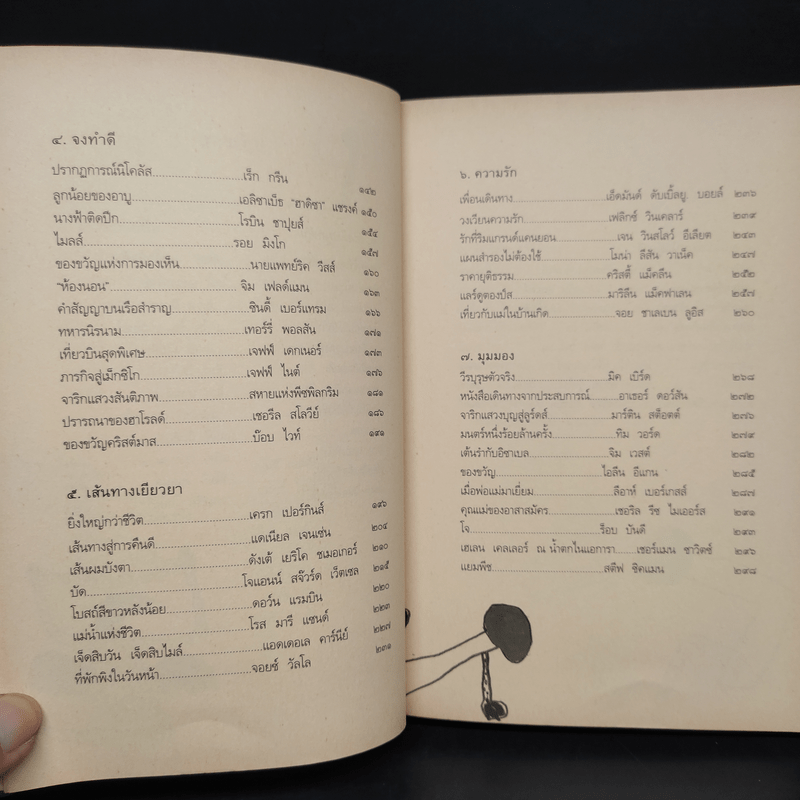 ๔. จงทำดี
ปรากฏการณ์นิโคลัส..........เร็ก กรีน ๑๔๒
ลูกน้อยของอาบู..........เอลิซาเบ็ธ "ฮาดิซา" แชรงค์ ๑๕๐
นางฟ้าติดปีก..........โรบิน ชาปุยส์ ๑๕๔
ไมลส์..........รอย มิงโก ๑๕๗
ของขวัญแห่งการมองเห็น..........นายแพทย์ริค วีสส์ ๑๖๐
"ห้องนอน"..........จิม เฟลด์แมน ๑๖๓
คำสัญญาบนเรือสำราญ..........ซินดี้ เบอร์แทรม ๑๖๖
ทหารนิรนาม..........เทอร์รี่ พอลสัน ๑๗๑
เที่ยวบินสุดพิเศษ..........เจฟฟ์ เดกเนอร์ ๑๗๓
ภารกิจสู่เม็กซิโก..........เจฟฟ์ ไนต์ ๑๗๖
จาริกแสวงสันติภาพ..........สหายแห่งพีซพิลกริม ๑๘๑
ปรารถนาของฮาโรลด์..........เชอรีล สโลวีย์ ๑๘๖
ของขวัญคริสต์มาส..........บ๊อบ ไวท์ ๑๙๑
๕. เส้นทางเยียวยา
ยิ่งใหญ่กว่าชีวิต..........เครก เปอร์กินส์ ๑๙๖
เส้นทางสู่การคืนดี..........แดเนียล เจนเซ่น ๒๐๔
เส้นผมบังตา..........ดังเต้ เยริโค ชเมอเกอร์ ๒๑๐
บัด..........โจแอนน์ สจ๊วร์ด เว็ตเซล ๒๑๕
โบสถ์สีขาวหลังน้อย..........ดอว์น แรมบิน ๒๒๐
แม่น้ำแห่งชีวิต..........โรส มารี แซนด์ ๒๒๓
เจ็ดสิบวัน เจ็ดสิบไมล์..........แอดเดอเล คาร์นีย์ ๒๒๗
ที่พักพิงในวันหน้า..........จอยซ์ วัลโล ๒๓๑
๖. ความรัก
เพื่อนเดินทาง..........เอ็ดมันด์ ดับเบิ้ลยู. บอยล์ ๒๓๖
วงเวียนความรัก..........เฟลิกซ์ วีนเคลาร์ ๒๓๙
รักที่ริมแกรนด์แคนยอน..........เจน วินสโลว์ อีเลียต ๒๔๓
แผนสำรองไม่ต้องใช้..........โมน่า ลีสัน วาเน็ค ๒๔๗
ราคายุติธรรม..........คริสตี้ แม็คลีน ๒๕๒
แลร์ดูตองป์ส..........มาริลีน แม็คฟาเลน ๒๕๗
เที่ยวกับแม่ในบ้านเกิด..........จอย ชาเลเบน ลูอิส ๒๖๐
๗. มุมมอง
วีรบุรุษตัวจริง..........มิค เบิร์ด ๒๖๘
หนังสือเดินทางจากประสบการณ์..........อาเธอร์ ดอว์สัน ๒๗๒
จาริกแสวงบุญสู่ลูร์ดส์..........มาร์ติน สต็อตต์ ๒๗๖
มนตร์หนึ่งร้อยล้านครั้ง..........ทิม วอร์ด ๒๗๙
เต้นรำกับอิซาเบล..........จิม เวสต์ ๒๘๒
ของขวัญ..........ไอลีน อีแกน ๒๘๕
เมื่อพ่อแม่มาเยี่ยม..........ลีอาห์ เบอร์เกสส์ ๒๘๗
คุณแม่ของอาสาสมัคร..........เชอริล รีซ ไมเออร์ส ๒๙๑
โจ..........ร็อบ บันดี ๒๙๓
เฮเลน เคลเลอร์ ณ น้ำตกไนแอการา..........เชอร์แมน ซาวิตซ์ ๒๙๖
แยมพีช..........สตีฟ ซิคแมน ๒๙๘